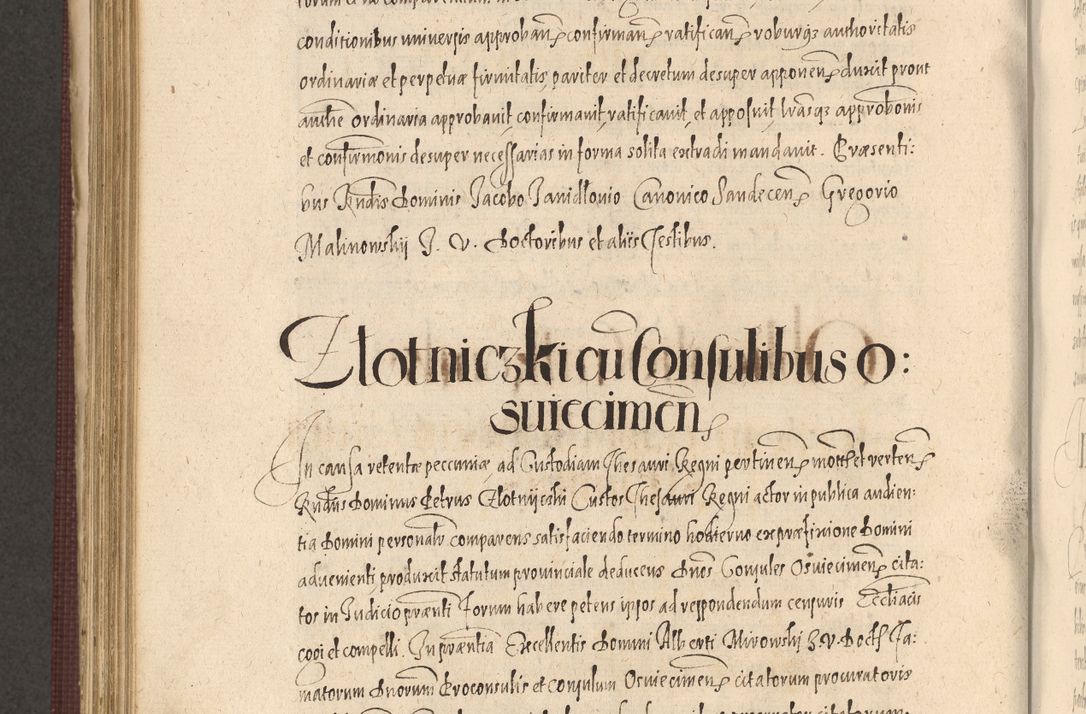 conditionibus universis approban͠ confirman͠ ratifican͠ roburq3 authoritatis
ordinariæ et perpetuæ firmitatis pariter et decretum desuper apponen͠ duxit prout
authe ordinaria approbavit confirmavit ratificavit et apposuit lrasq3 approbõnis
et confirmonis desuper necessarias in forma solita extradi mandavit. Præsenti:
bus Rndis Dominis Jacobo Janidlovio Canonico Sandecen͠ Gregorio
Malinowskij J. V. Doctoribus et aliis Testibus.
Zlotniczki cũ Consulibus O:
suiecimen͠
In causa retentæ peccuniæ ad Custodiam Thesauri Regni pertinen͠ mott et verten͠
Rndus Dominus Petrus Zlotnijczki Custos Thesauri Regni actor in publica audien:
tia Domini personalr comparens satisfaciendo termino hodierno ex præfixione Domini
advenienti produxit statutum provinciale deducens dnos Consules Osviecimen͠ cita:
tos in Judicio prænti Forum habere petens ipsos ad respondendum censuris Eccliacis
cogi et compelli. In præntia Excellentis Domini Alberti Mirowskj J. V. Doct Fa:
matorum dnorum Proconsulis et consulum Osviecimen͠ citatorum procuratoris